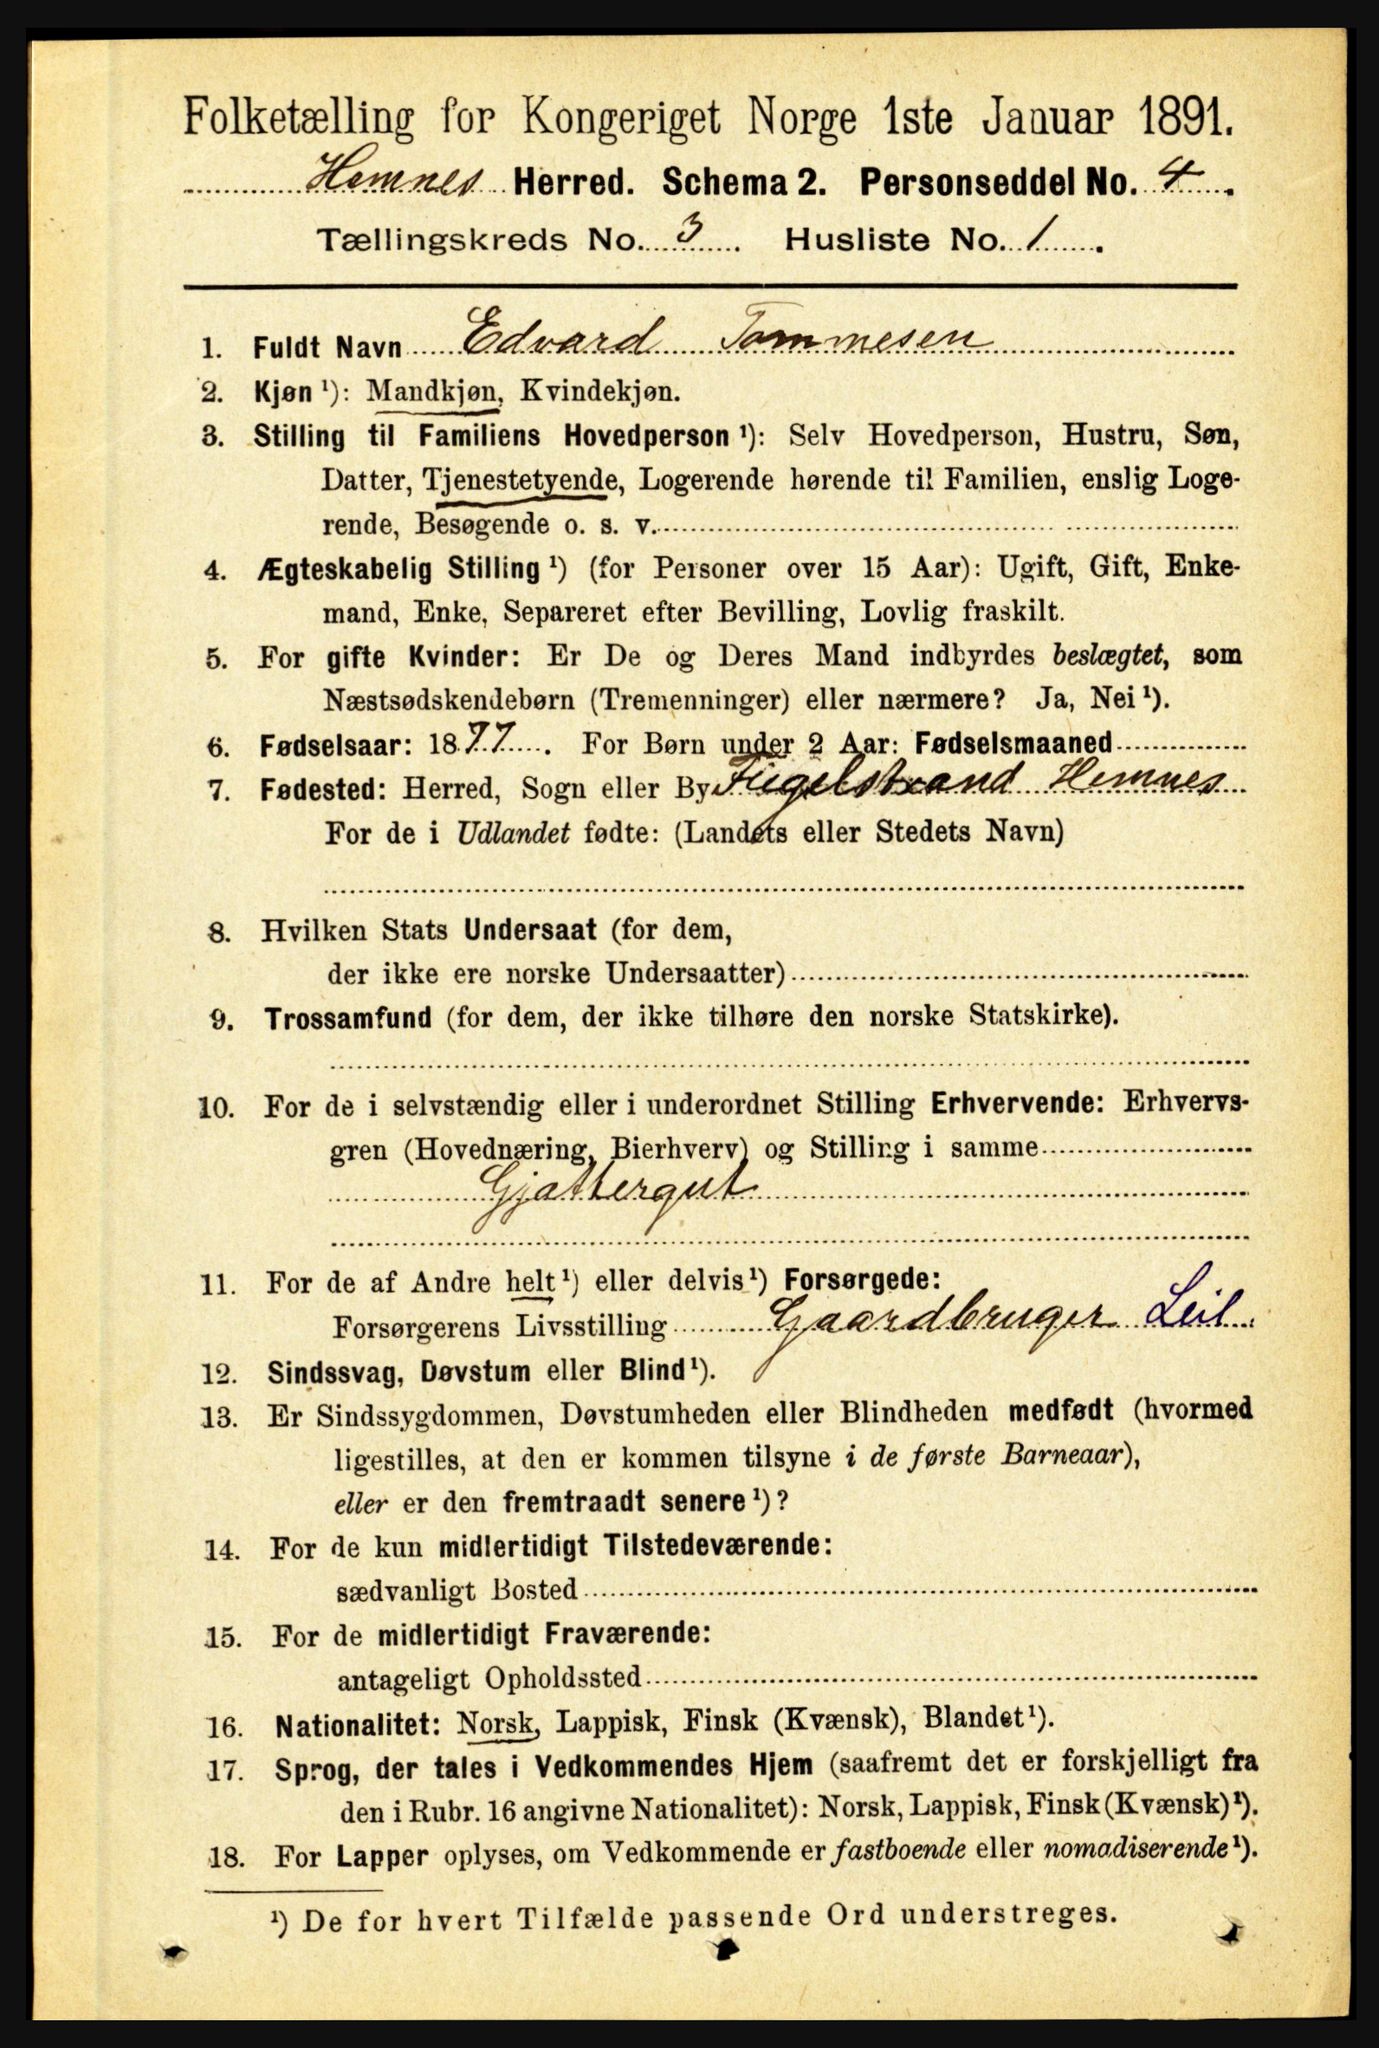 Folketælling for Kongeriget Norge 1ste Januar 1891.
Hemnes Herred. Schema 2. Personseddel No. 4.
Tællingskreds No. 3. Husliste No. 1.
1. Fuldt Navn Edvard Tommesen
2. Kjøn ¹): Mandkjøn, Kvindekjøn.
3. Stilling til Familiens Hovedperson ¹): Selv Hovedperson, Hustru, Søn,
Datter, Tjenestetyende, Logerende hørende til Familien, enslig Loge-
rende, Besøgende o. s. v.
4. Ægteskabelig Stilling ¹) (for Personer over 15 Aar): Ugift, Gift, Enke-
mand, Enke, Separeret efter Bevilling, Lovlig fraskilt.
5. For gifte Kvinder: Er De og Deres Mand indbyrdes beslægtet, som
Næstsødskendebørn (Tremenninger) eller nærmere? Ja, Nei ¹).
6. Fødselsaar: 1877. For Børn under 2 Aar: Fødselsmaaned
7. Fødested: Herred, Sogn eller By Fugelstrand Hemnes
For de i Udlandet fødte: (Landets eller Stedets Navn)
8. Hvilken Stats Undersaat (for dem,
der ikke ere norske Undersaatter)
9. Trossamfund (for dem, der ikke tilhøre den norske Statskirke).
10. For de i selvstændig eller i underordnet Stilling Erhvervende: Erhvervs-
gren (Hovednæring, Bierhverv) og Stilling i samme
Gjættergut
11. For de af Andre helt ¹) eller delvis ¹) Forsørgede:
Forsørgerens Livsstilling Gaardbruger Leil.
12. Sindssvag, Døvstum eller Blind ¹).
13. Er Sindssygdommen, Døvstumheden eller Blindheden medfødt (hvormed
ligestilles, at den er kommen tilsyne i de første Barneaar),
eller er den fremtraadt senere ¹)?
14. For de kun midlertidigt Tilstedeværende:
sædvanligt Bosted
15. For de midlertidigt Fraværende:
antageligt Opholdssted
16. Nationalitet: Norsk, Lappisk, Finsk (Kvænsk), Blandet ¹).
17. Sprog, der tales i Vedkommendes Hjem (saafremt det er forskjelligt fra
den i Rubr. 16 angivne Nationalitet): Norsk, Lappisk, Finsk (Kvænsk) ¹).
18. For Lapper oplyses, om Vedkommende er fastboende eller nomadiserende ¹).
¹) De for hvert Tilfælde passende Ord understreges.